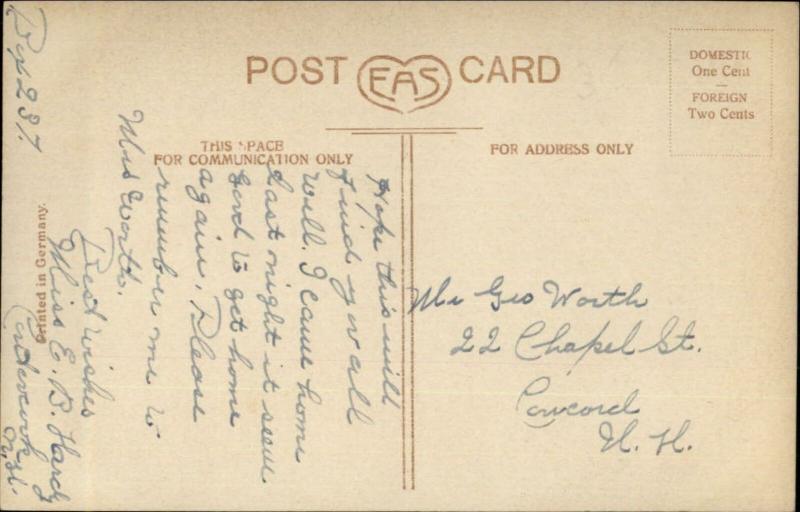 POST EAS CARD
DOMESTIC
One Cent
FOREIGN
Two Cents
THIS SPACE
FOR COMMUNICATION ONLY
FOR ADDRESS ONLY
Hope this will
find you all
well. I came home
last night it seem
Good to get home
again. Please
remember me to
Mrs Worth.
Best wishes
Miss E. B. Hardy
N. H.
Box 237.
Printed in Germany.
Mr Geo Worth
22 Chapel St.
Concord
N. H.